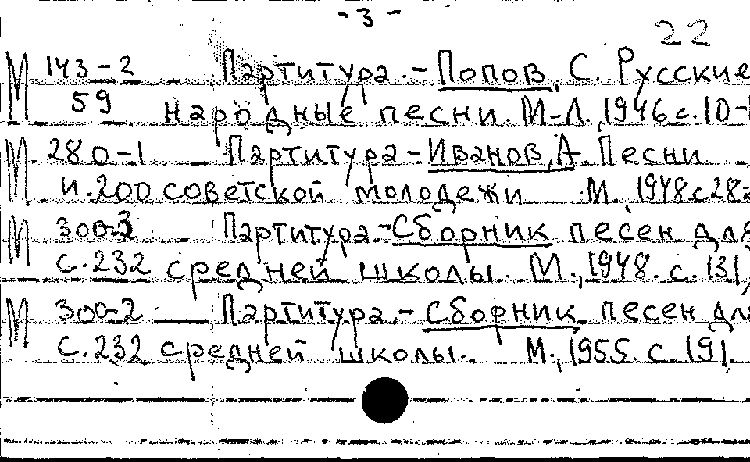 - 3 -
22
М 143-2 Партитура - Попов, С. Русские
59 народные песни. М-Л, 1946 с. 10-1
М 280-1 Партитура - Иванов, А. Песни
и. 200 советской молодежи М. 1948 с 28
М 300-3 Партитура - Сборник песен для
с. 232 средней школы. М., 1948. с. 131,
М 300-2 Партитура - Сборник песен для
с. 232 средней школы. М., 1955 с 191